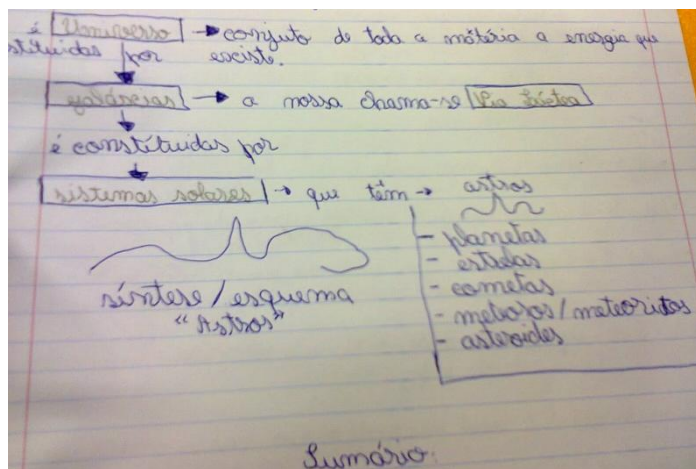 é Universo → conjuto de toda a mátéria a energia que
stituidas por existe.
galáscias → a nossa chama-se Via Láctea
é constítuidas por
sistemas solares → que têm → astros
- planetas
- estrelas
- cometas
- meteoros/meteoritos
- asteroides
síntese/esquema
"Astros"
Sumário: